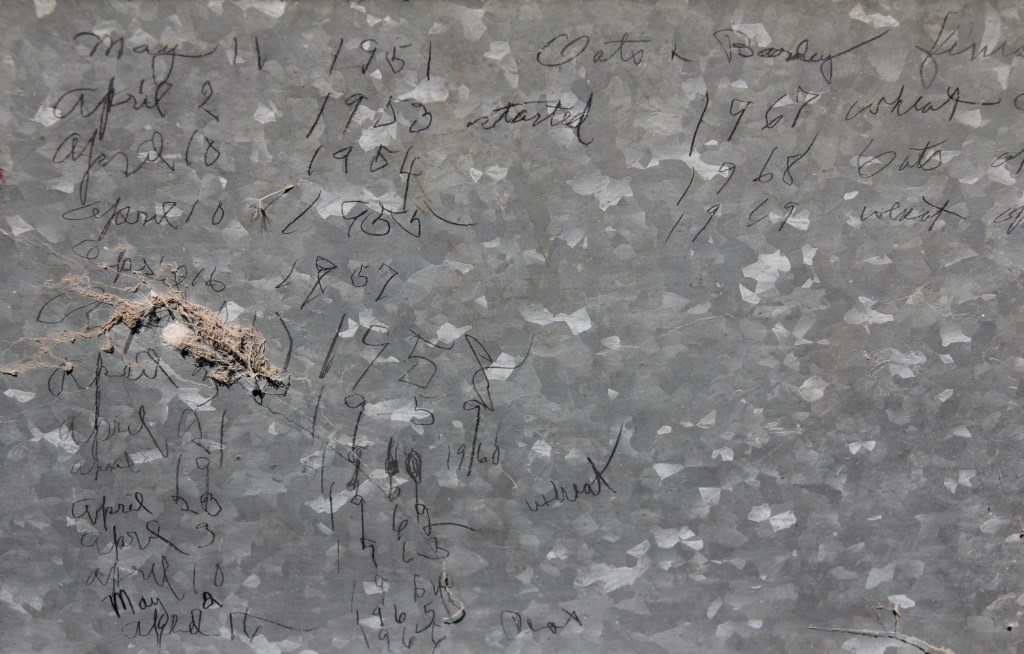 May 11 1951 Oats & Barley
April 2 1953 started 1967 wheat
April 10 1954 1968 Oats
April 10 1955 1969 wheat
1957
April 1958
April 21 1959
April 19 1960
April 28 1962 wheat
April 3 1963
April 10 1964
May 2 1965
April 16 1966